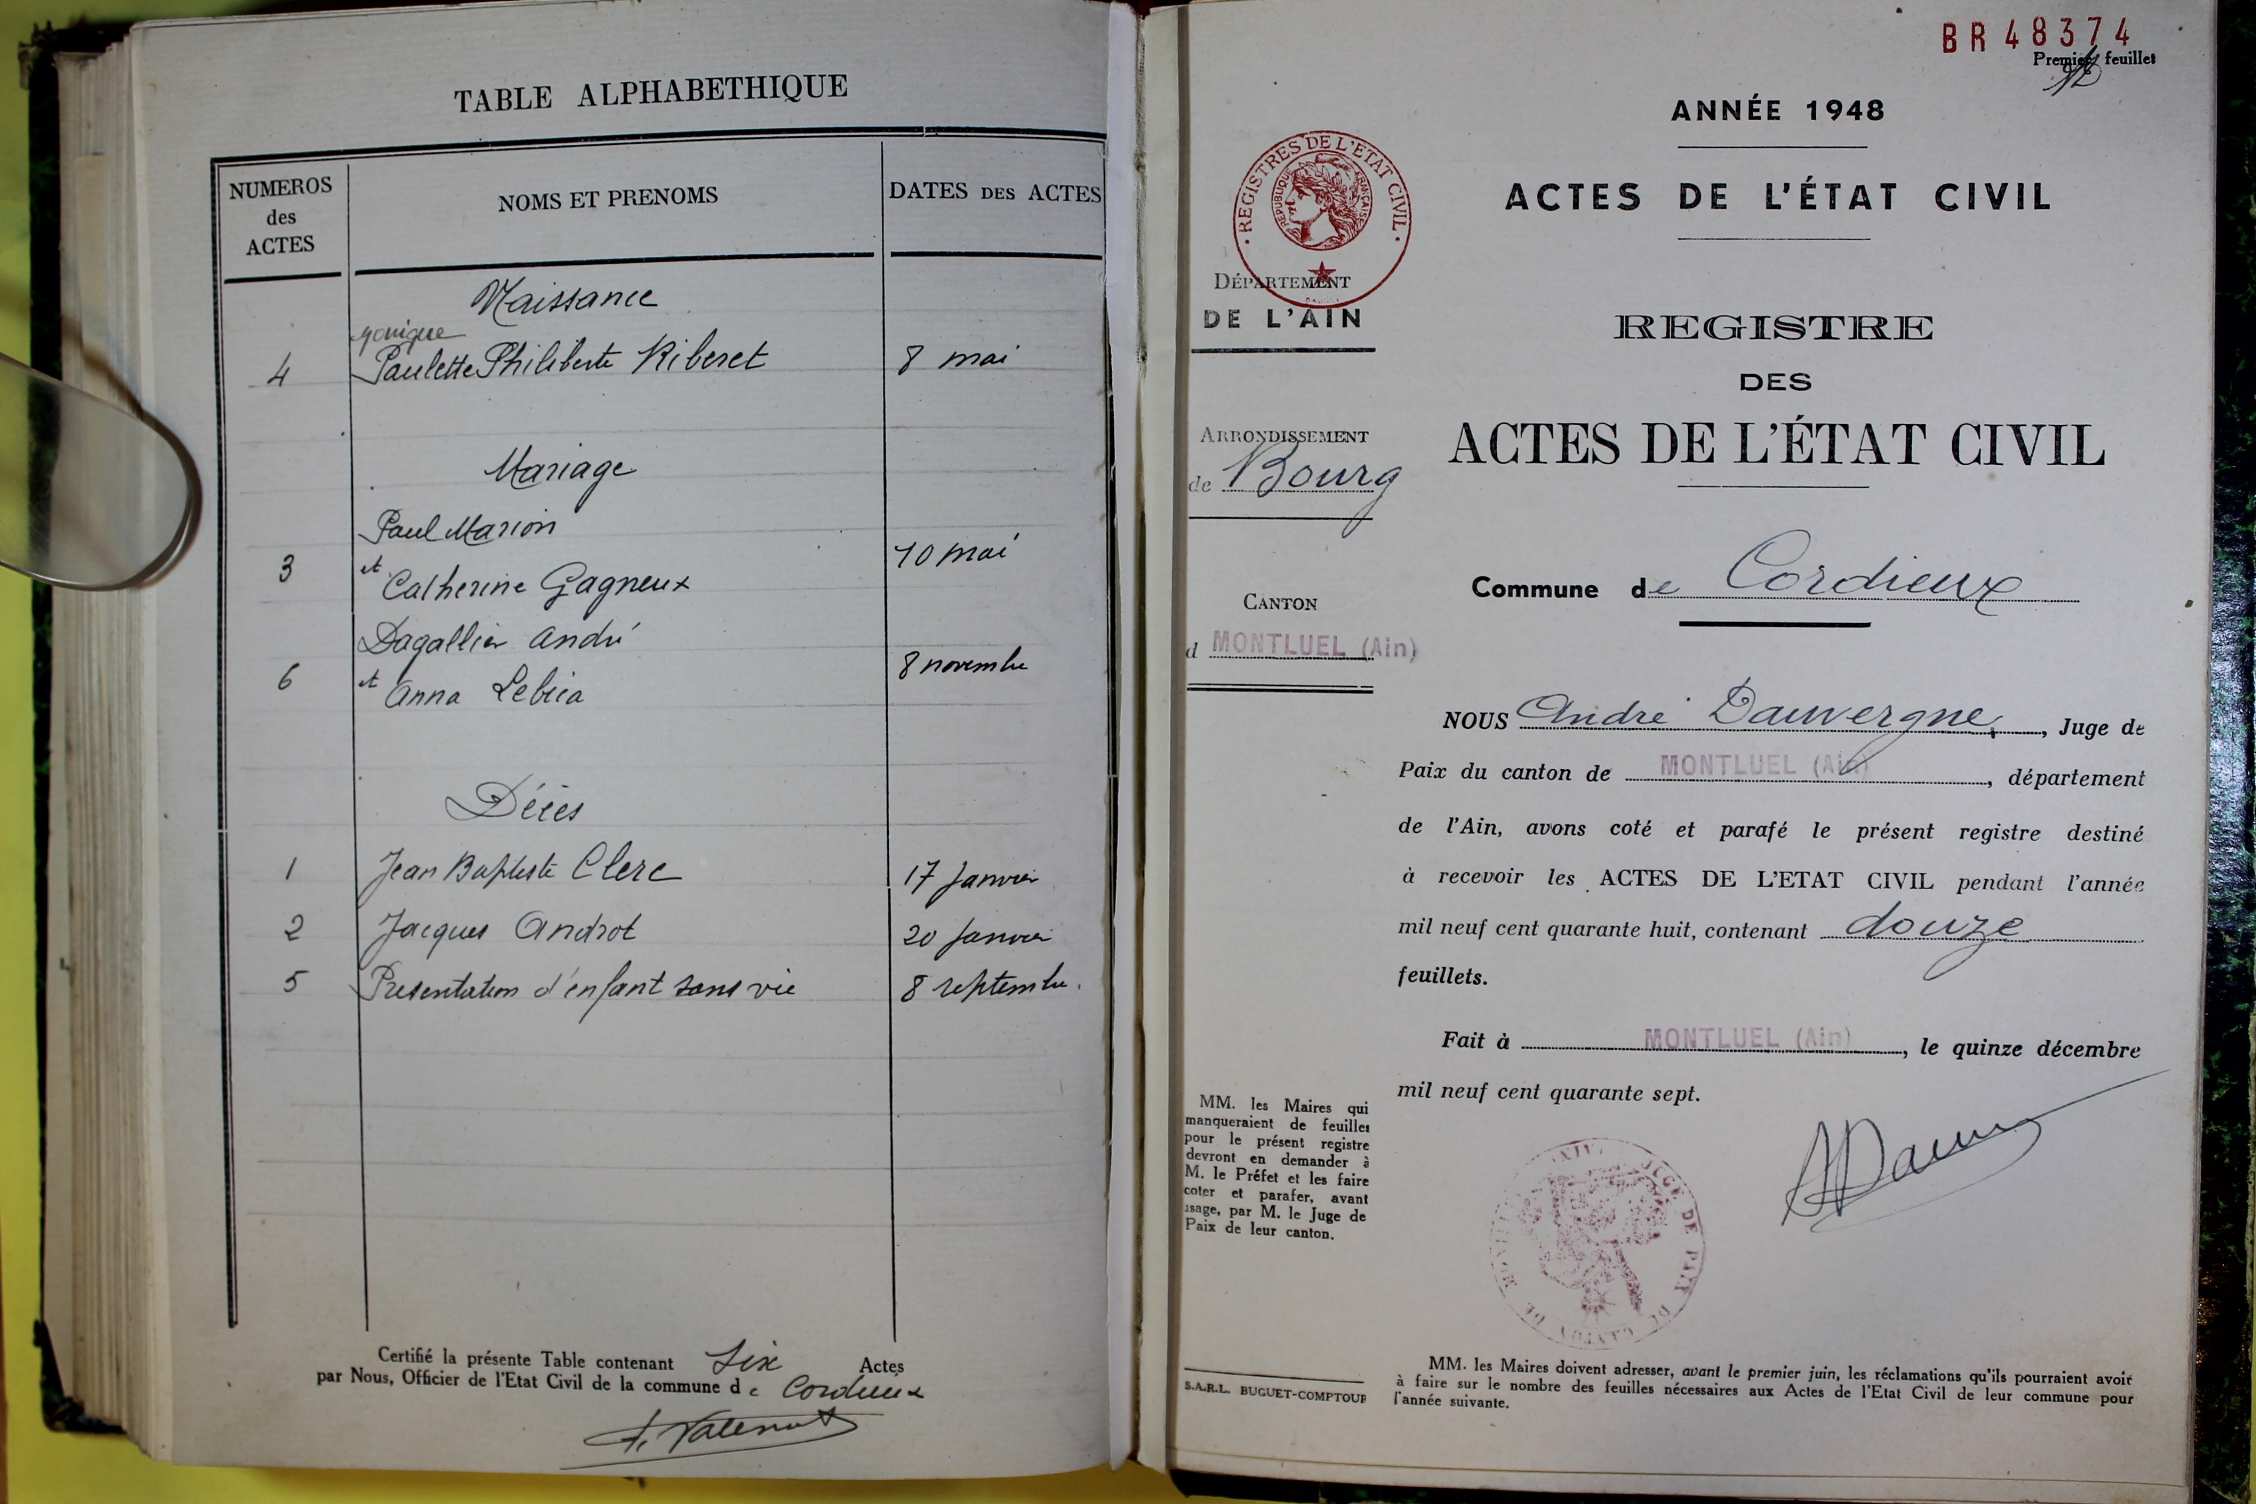 TABLE ALPHABETHIQUE
NUMEROS
des
ACTES
NOMS ET PRENOMS
DATES DES ACTES
Naissance
Monique
4 Paulette Philiberte Riberet 8 mai
Mariage
Paul Marion
3 et Catherine Gagneux 10 mai
Dagallier André
6 et Anna Lebria 8 novembre
Décès
1 Jean Baptiste Clerc 17 Janvier
2 Jacques Androt 20 Janvier
5 Presentation d'enfant sans vie 8 septembre.
Certifié la présente Table contenant six Actes
par Nous, Officier de l'Etat Civil de la commune de Cordieux
BR 48374
Premier feuillet
ANNÉE 1948
ACTES DE L'ÉTAT CIVIL
REGISTRES DE L'ETAT CIVIL
REPUBLIQUE FRANÇAISE
DÉPARTEMENT
DE L'AIN
REGISTRE
DES
ACTES DE L'ÉTAT CIVIL
ARRONDISSEMENT
de Bourg
Commune de Cordieux
CANTON
d MONTLUEL (Ain)
NOUS André Dauvergne, Juge de
Paix du canton de MONTLUEL (Ain), département
de l'Ain, avons coté et parafé le présent registre destiné
à recevoir les ACTES DE L'ETAT CIVIL pendant l'année
mil neuf cent quarante huit, contenant douze
feuillets.
Fait à MONTLUEL (Ain), le quinze décembre
mil neuf cent quarante sept.
MM. les Maires qui
manqueraient de feuilles
pour le présent registre
devront en demander à
M. le Préfet et les faire
coter et parafer, avant
usage, par M. le Juge de
Paix de leur canton.
JUGE DE PAIX DU CANTON DE
S.A.R.L. BUGUET-COMPTOUR
MM. les Maires doivent adresser, avant le premier juin, les réclamations qu'ils pourraient avoir
à faire sur le nombre des feuilles nécessaires aux Actes de l'Etat Civil de leur commune pour
l'année suivante.